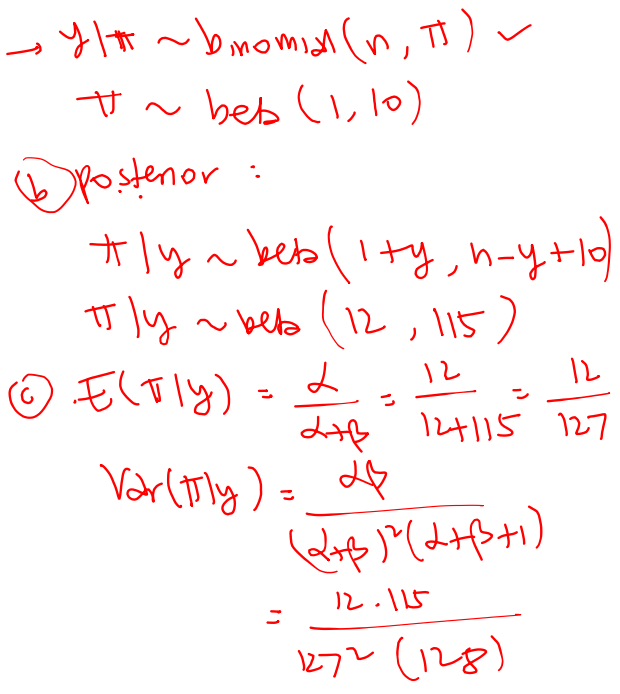 → y|π ~ binomial(n, π) ✓
π ~ beta (1, 10)
(b) posterior :
π|y ~ beta(1+y, n-y+10)
π|y ~ beta (12, 115)
(c) . E(π|y) = α/(α+β) = 12/(12+115) = 12/127
Var(π|y) = αβ/((α+β)²(α+β+1))
= 12.115/(127² (128))